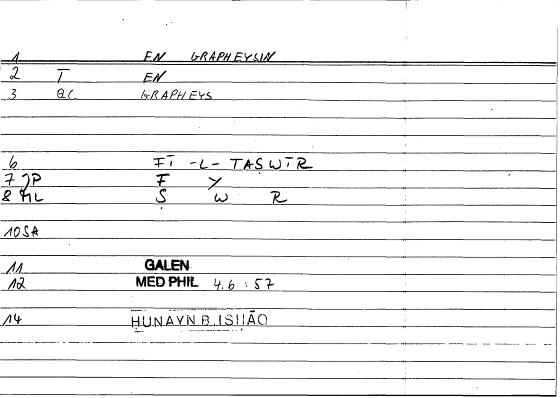 1 EN GRAPHEYSIN
2 T̄ EN
3 QC GRAPHEYS
6 FĪ -L- TAṢWĪR
7 JP F Y
8 ML Ṣ W R
10 SA
11 GALEN
12 MED PHIL 4.6 : 57
14 ḤUNAYN B. ISḤĀQ